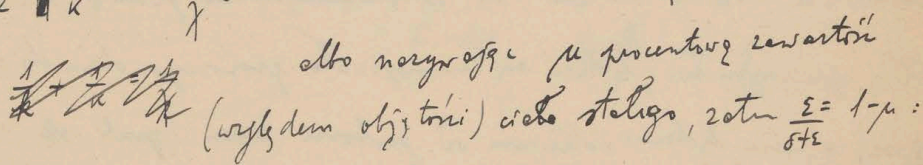 k
χ
albo nazywając μ procentową zawartość
(względem objętości) ciała stałego, zatem ε/(δ+ε) = 1-μ :